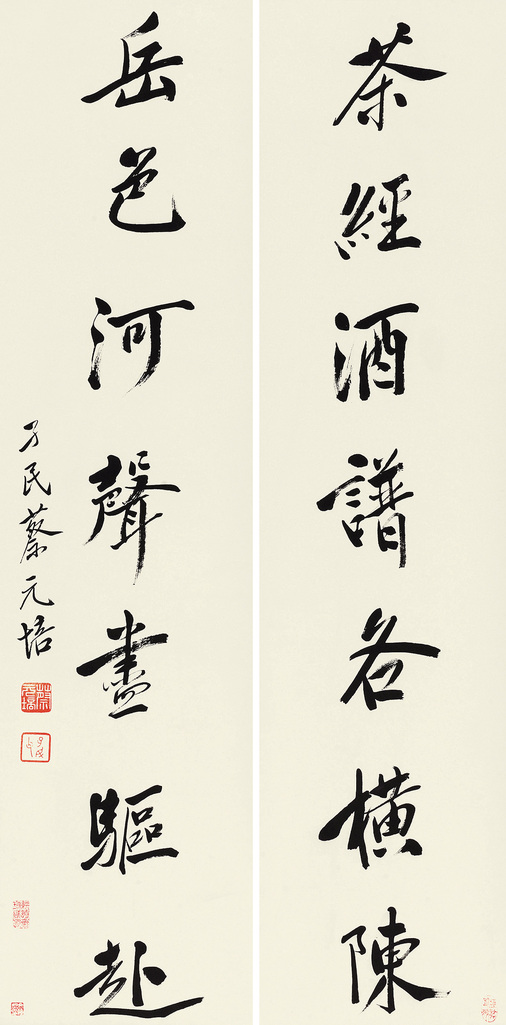 茶經酒譜各橫陳
岳色河聲盡驅赴
孑民蔡元培
蔡元培